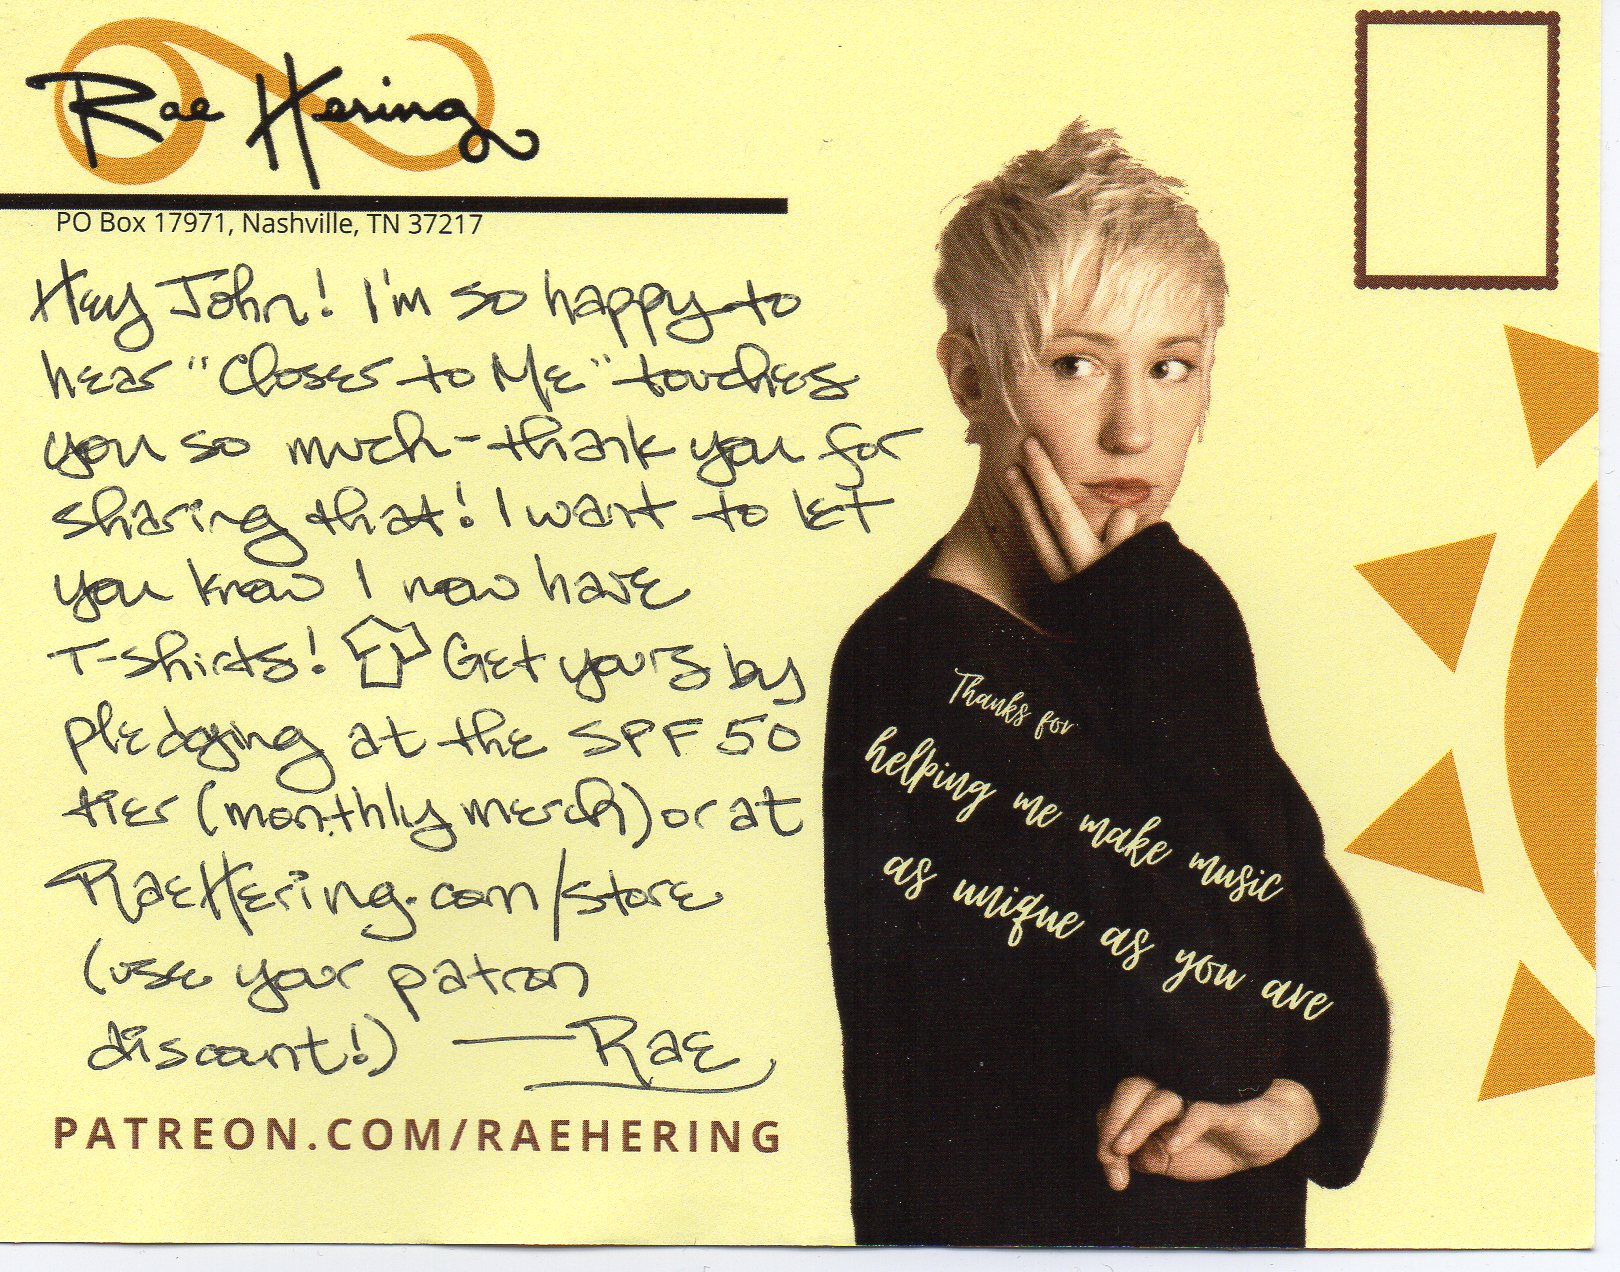 Rae Hering
PO Box 17971, Nashville, TN 37217
Hey John! I'm so happy to
hear "Closer to Me" touches
you so much - thank you for
sharing that! I want to let
you know I now have
T-shirts! Get yours by
pledging at the SPF 50
tier (monthly merch) or at
RaeHering.com/store
(use your patron
discount!) —Rae
PATREON.COM/RAEHERING
Thanks for
helping me make music
as unique as you are